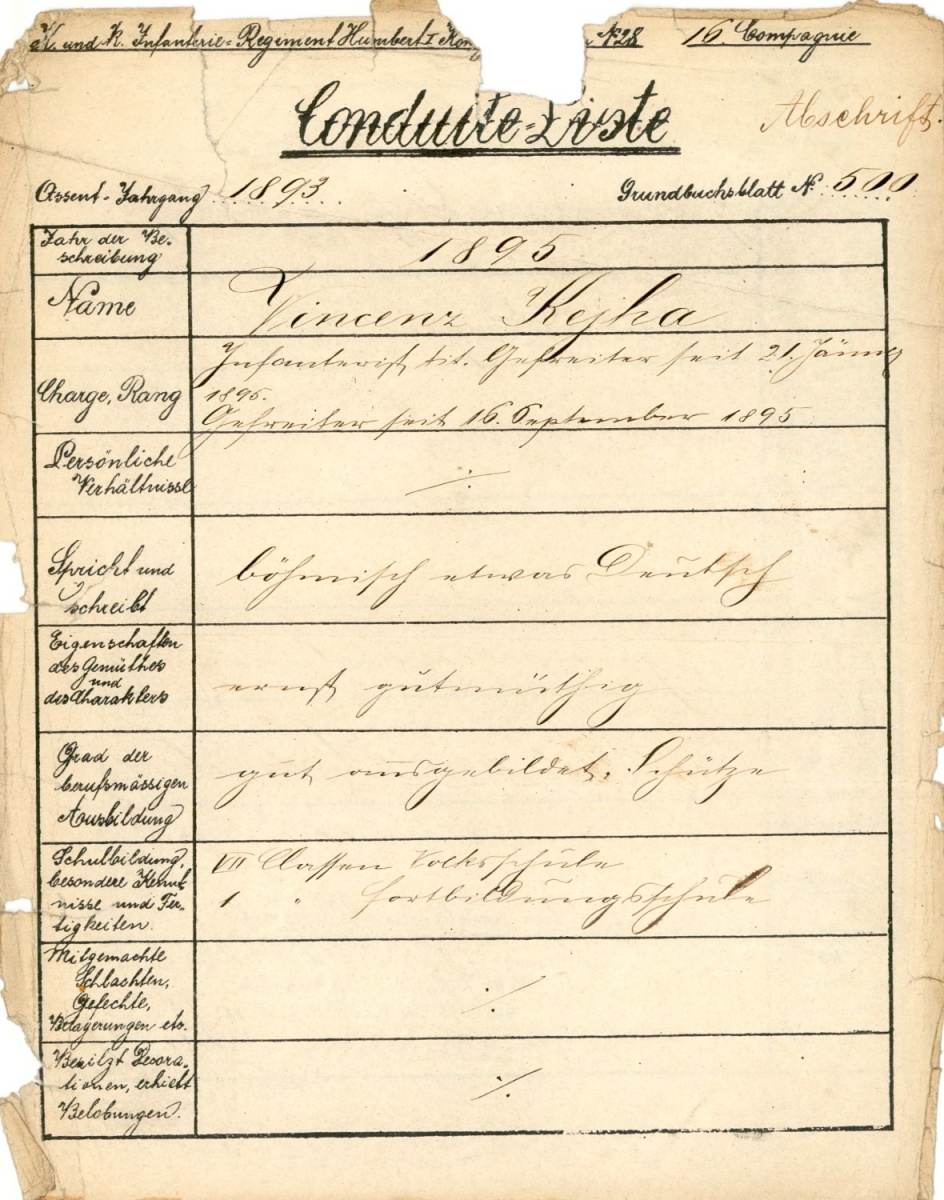 K. und K. Infanterie=Regiment Humbert I Kön № 28 16. Compagnie
Conduite=Liste
Abschrift.
Assent-Jahrgang 1893. Grundbuchsblatt № 500.
Jahr der Be-
schreibung
1895
Name
Vincenz Kejha
Charge, Rang
Infanterist tit. Gefreiter seit 21. Jänner
1895.
Gefreiter seit 16. September 1895
Persönliche
Verhältnisse
./.
Spricht und
schreibt
böhmisch etwas Deutsch
Eigenschaften
des Gemüthes
und
des Charakters
ernst gutmüthig
Grad der
berufsmässigen
Ausbildung
gut ausgebildet. Schütze
Schulbildung,
besondere Kennt-
nisse und Fer-
tigkeiten.
VII Classen Volksschule
1 " Fortbildungsschule
Mitgemachte
Schlachten,
Gefechte,
Belagerungen etc.
./.
Besitzt Decora-
tionen, erhielt
Belobungen.
./.